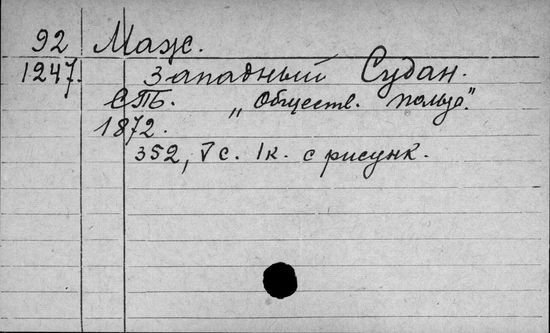 92 Маж.
1247. Западный Судан.
СПБ. „Обществ. польза."
1872.
352, V с. 1к. с рисунк.